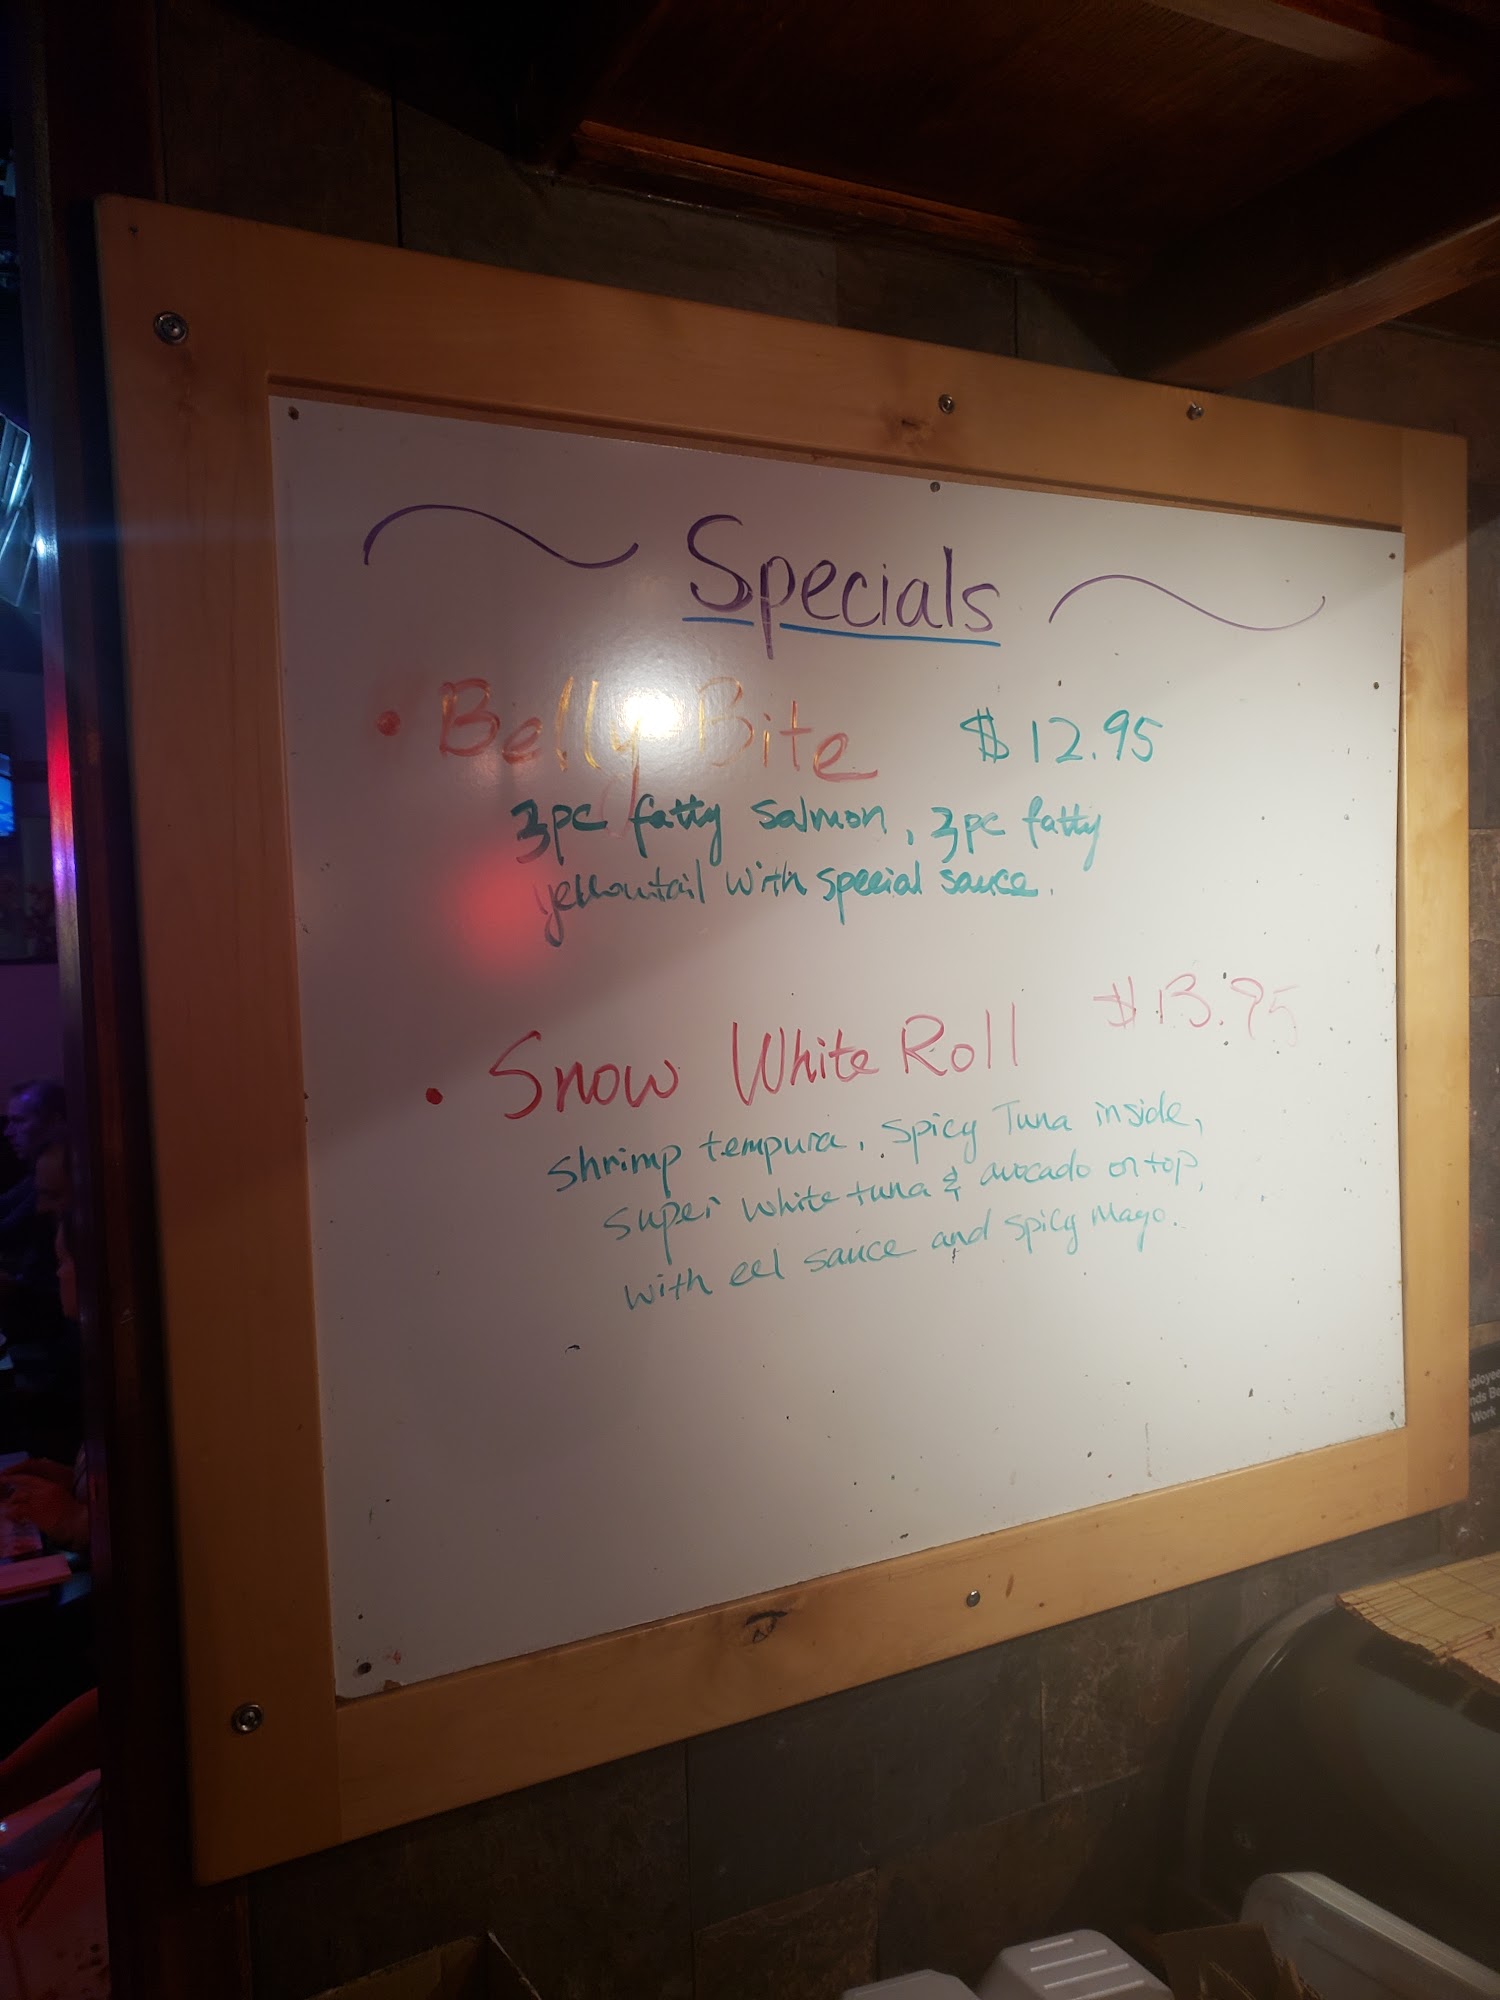 Specials
• Belly Bite $12.95
3pc fatty salmon, 3pc fatty
yellowtail with special sauce.
• Snow White Roll $13.95
shrimp tempura, spicy Tuna inside,
super white tuna & avocado on top,
with eel sauce and spicy mayo.
Work